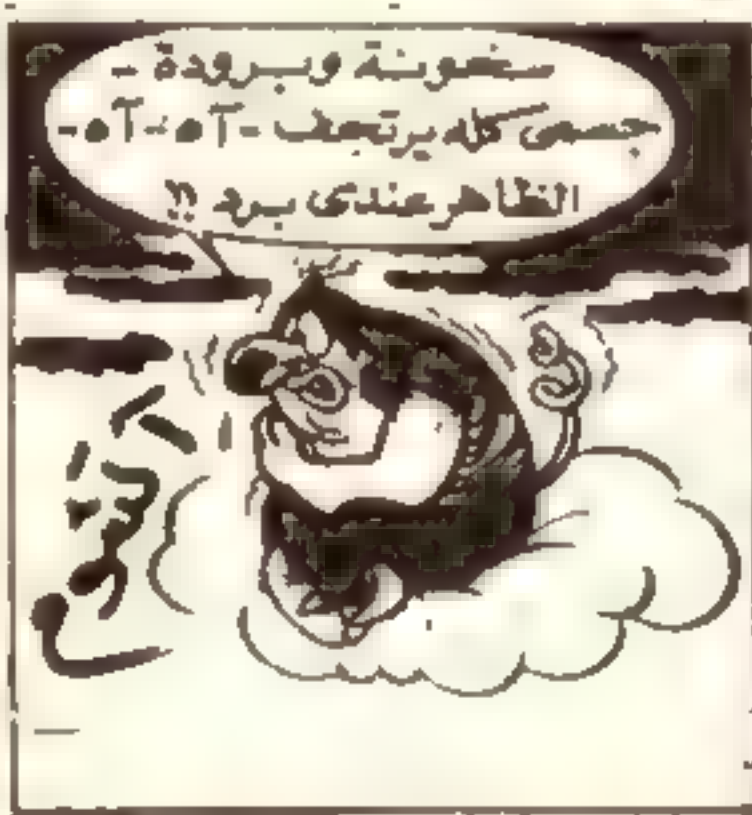 سخونة وبرودة -
جسمى كله يرتجف - آه - آه -
الظاهر عندى برد !!